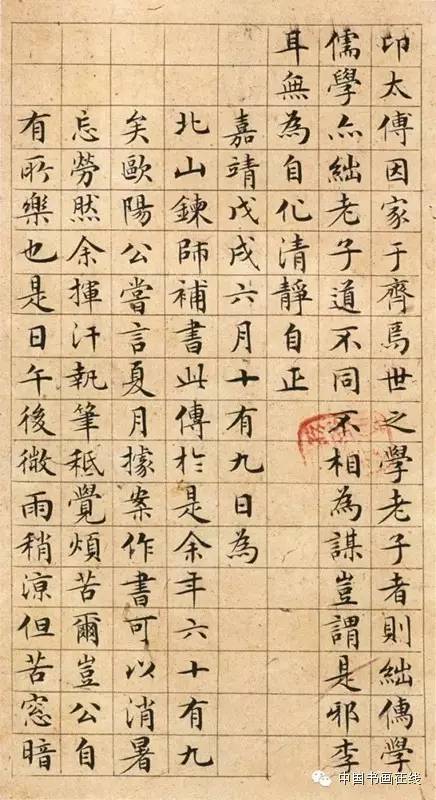 卬太傅因家于齊焉世之學老子者則絀儒學
儒學亦絀老子道不同不相為謀豈謂是邪李
耳無為自化清靜自正
嘉靖戊戌六月十有九日為
北山鍊師補書此傳於是余年六十有九
矣歐陽公嘗言夏月據案作書可以消暑
忘勞然余揮汗執筆秪覺煩苦爾豈公自
有所樂也是日午後微雨稍涼但苦窓暗
中国书画在线